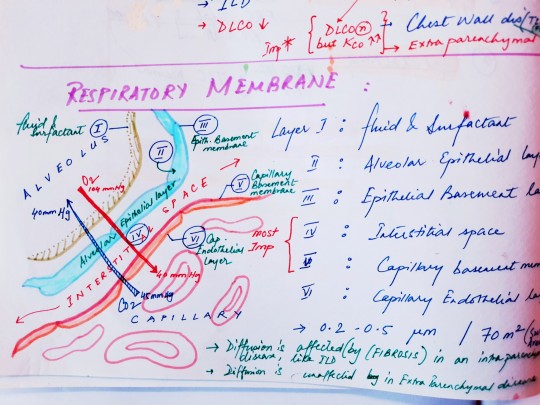 → ILD
→ DLCO ↓
Imp*
DLCO (n)
but KCO ↑↑
→ Chest Wall
→ Extraparenchymal
RESPIRATORY MEMBRANE :
fluid & Surfactant
I
III
Epith. Basement membrane
II
ALVEOLUS
O2
104 mmHg
40 mmHg
Alveolar Epithelial layer
INTERSTITIAL SPACE
V
Capillary Basement membrane
IV
VI
Cap. Endothelial Layer
40 mmHg
CO2
45 mmHg
CAPILLARY
Layer I : fluid & Surfactant
II : Alveolar Epithelial
III : Epithelial Basement
most Imp
IV : Interstitial space
V : Capillary basement
VI : Capillary Endothelial
→ 0.2 - 0.5 μm / 70 m²
→ Diffusion is affected (by (FIBROSIS) in an
like ILD
→ Diffusion is unaffected in Extra Parenchymal